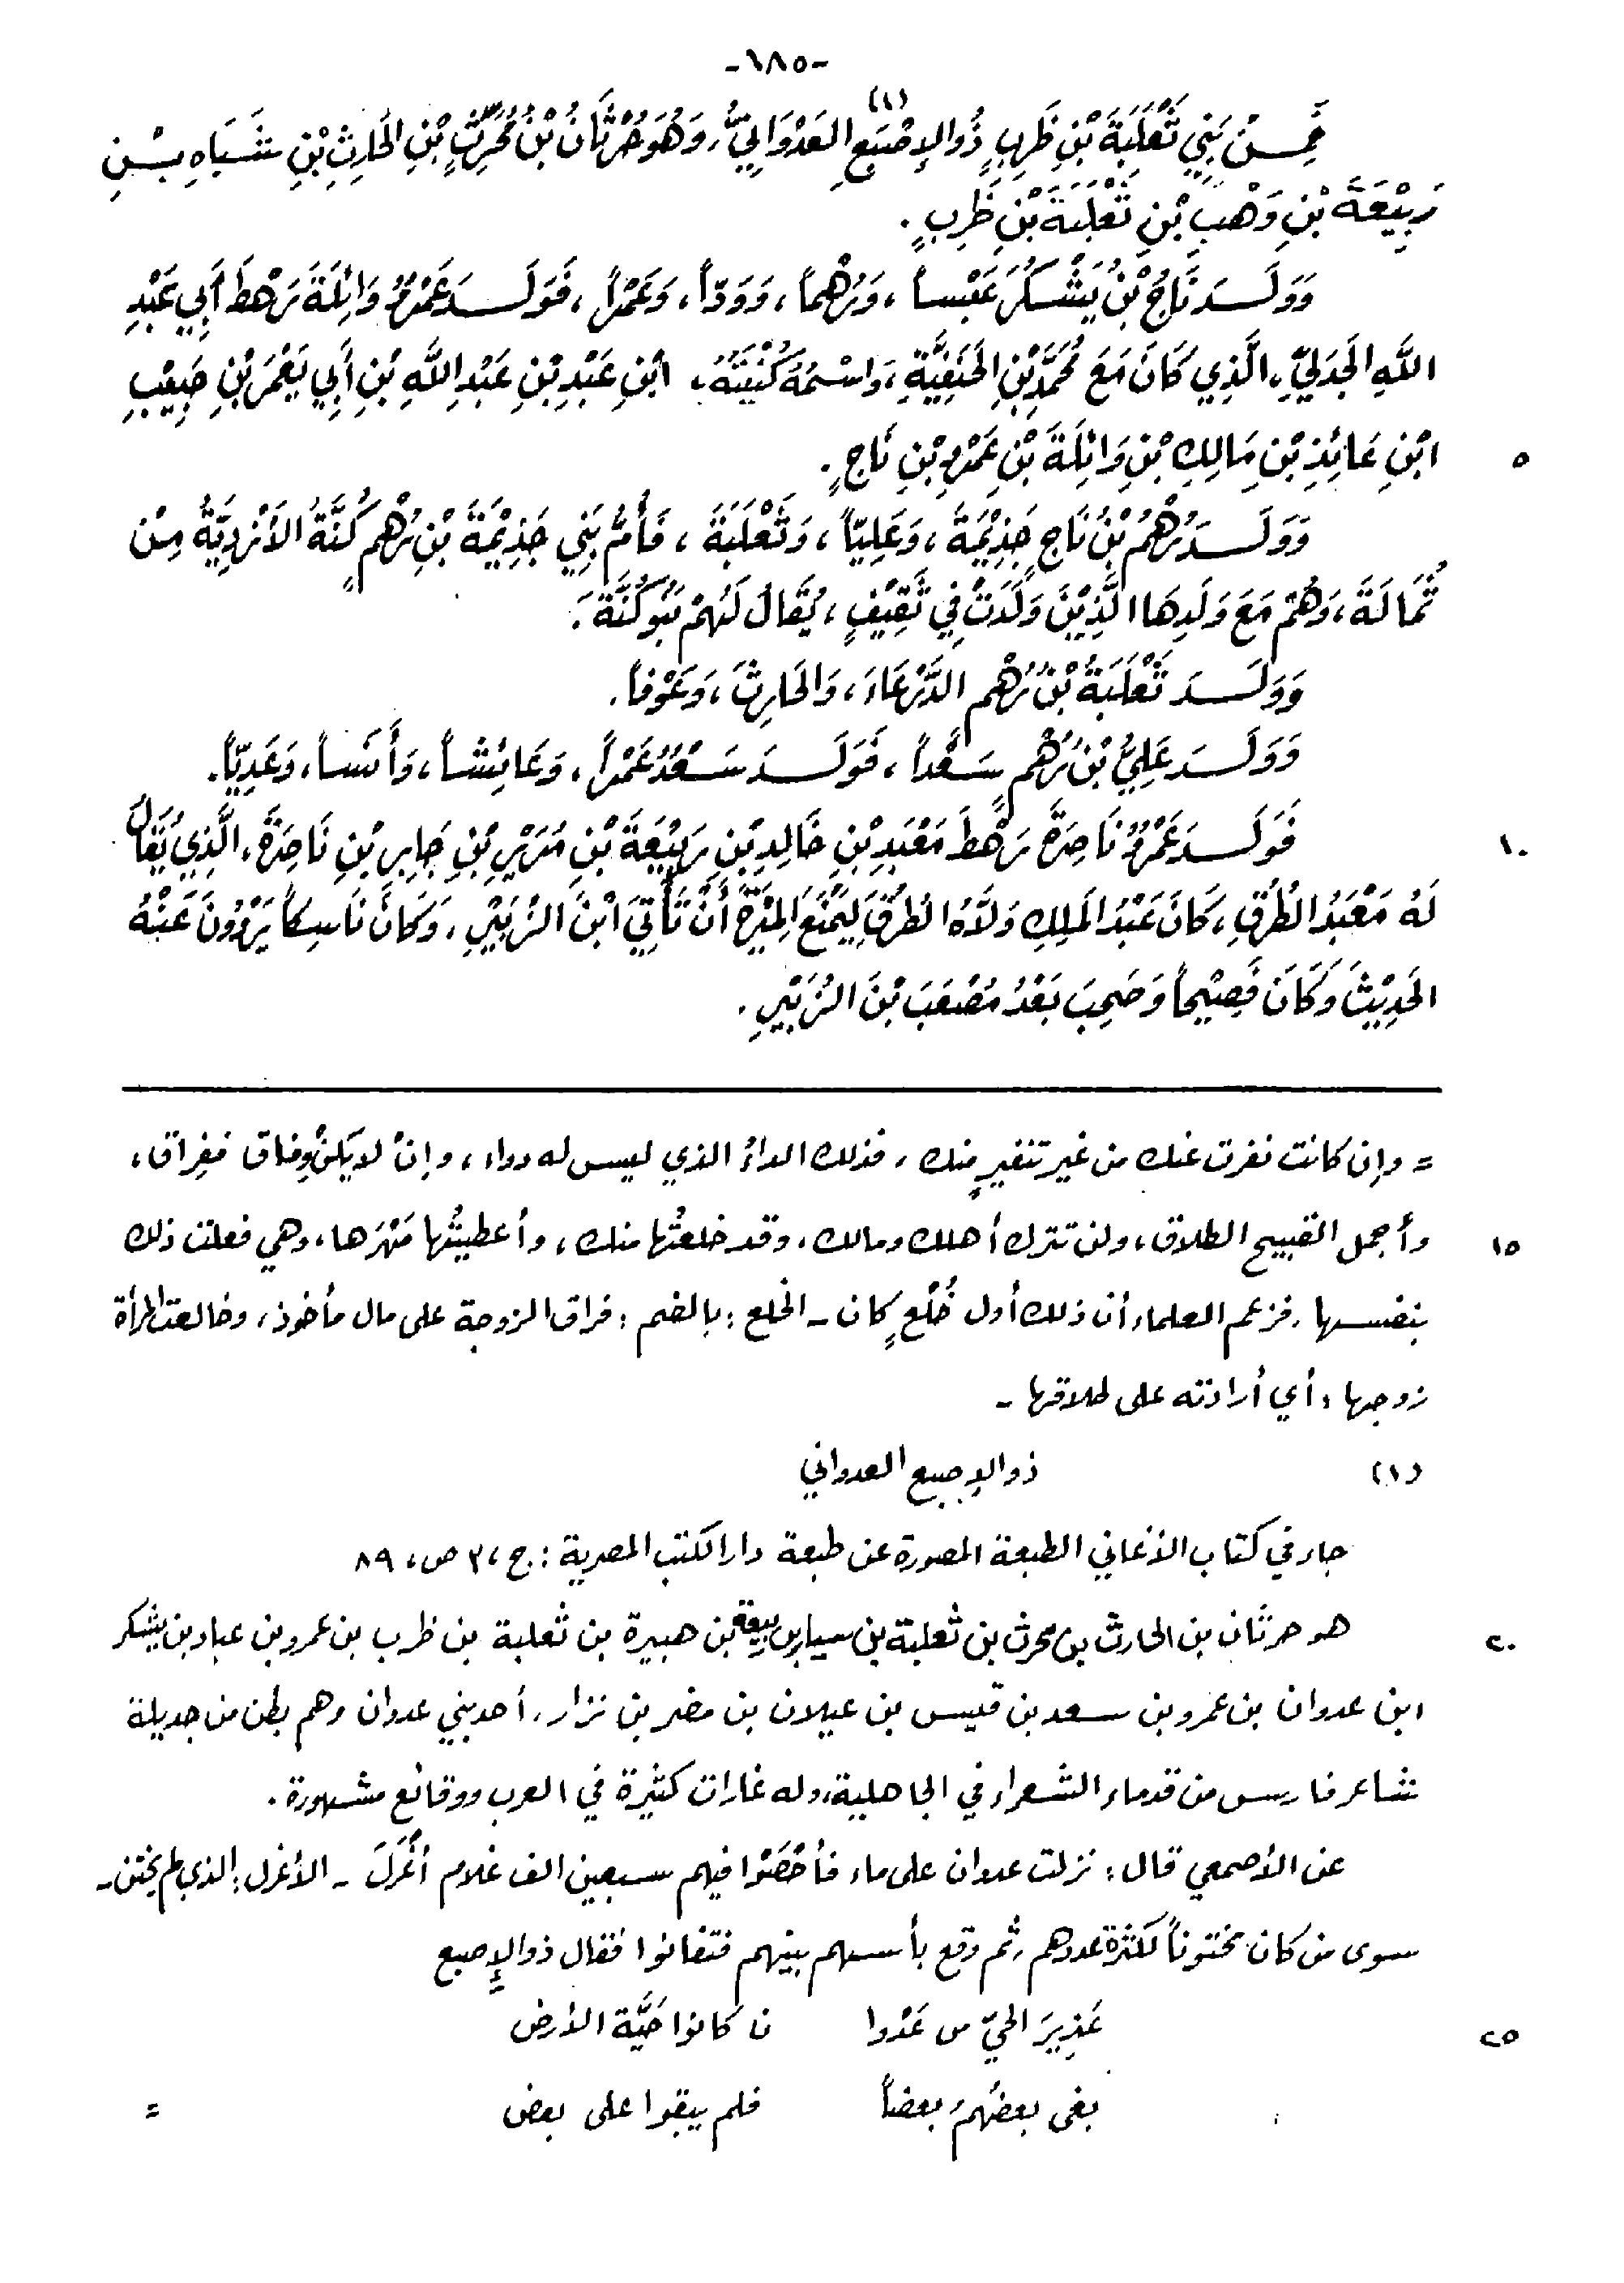 -١٨٥-
فَمِنْ بَنِي ثَعْلَبَةَ بْنِ ظَرِبٍ ذُو الإِصْبَعِ (١) العَدْوَانِيُّ، وَهُوَ حُرْثَانُ بْنُ مُحَرِّثِ بْنِ الحَارِثِ بْنِ شَبَاهِ بْنِ
رَبِيْعَةَ بْنِ وَهْبِ بْنِ ثَعْلَبَةَ بْنِ ظَرِبٍ.
وَوَلَدَ نَاجُ بْنُ يَشْكُرَ عَبْساً، وَرُهْماً، وَوَدّاً، وَعَمْراً، فَوَلَدَ عَمْرٌو وَائِلَةَ رَهْطَ أَبِي عَبْدِ
اللَّهِ الجَدَلِيِّ، الَّذِي كَانَ مَعَ مُحَمَّدِ بْنِ الحَنَفِيَّةِ، وَاسْمُهُ كُنْيَتُهُ، ابْنِ عَبْدِ بْنِ عَبْدِ اللَّهِ بْنِ أَبِي يَعْمَرَ بْنِ حَبِيْبِ
٥ ابْنِ عَائِذِ بْنِ مَالِكِ بْنِ وَائِلَةَ بْنِ عَمْرِو بْنِ نَاجٍ.
وَوَلَدَ رُهْمُ بْنُ نَاجٍ جَذِيْمَةَ، وَعَلِيّاً، وَثَعْلَبَةَ، فَأُمُّ بَنِي جَذِيْمَةَ بْنِ رُهْمٍ كُنَّةُ الأَزْدِيَّةُ مِنْ
ثُمَالَةَ، وَهُمْ مَعَ وَلَدِهَا الَّذِيْنَ وَلَدَتْ فِي ثَقِيْفٍ، يُقَالُ لَهُمْ بَنُو كُنَّةَ.
وَوَلَدَ ثَعْلَبَةُ بْنُ رُهْمٍ الدَّرْعَاءَ، وَالحَارِثَ، وَعَوْفاً.
وَوَلَدَ عَلِيُّ بْنُ رُهْمٍ سَعْداً، فَوَلَدَ سَعْدٌ عَمْراً، وَعَائِشاً، وَأَنَساً، وَعَدِيّاً.
١٠ فَوَلَدَ عَمْرٌو نَاصِرَةَ رَهْطَ مَعْبَدِ بْنِ خَالِدِ بْنِ رَبِيْعَةَ بْنِ مُرَيْرِ بْنِ جَابِرِ بْنِ نَاصِرَةَ، الَّذِي يُقَالُ
لَهُ مَعْبَدُ الطُّرُقِ، كَانَ عَبْدُ المَلِكِ وَلَّاهُ الطُرُقَ لِيَمْنَعَ المِيْرَةَ أَنْ تَأْتِيَ ابْنَ الزُّبَيْرِ، وَكَانَ نَاسِكاً يَرْوُونَ عَنْهُ
الحَدِيْثَ وَكَانَ فَصِيْحاً وَصَحِبَ بَعْدُ مُصْعَبَ بْنَ الزُبَيْرِ.
= وإن كانت نفرت عنك من غير تنفيرٍ منك، فذلك الداءُ الذي ليس له دواء، وإنْ لا يَكنْ وِفاق ففِراق،
١٥ وأجمل القبيح الطلاق، ولن تترك أهلك ومالك، وقد خلعتُها منك، وأعطيتُها مَهْرَها، وهي فعلت ذلك
بنفسها، فزعم العلماء أن ذلك أول خُلْعٍ كان - الخلع: بالضم: فراق الزوجة على مال مأخوذ، وخالعت المرأة
زوجها: أي أرادته على طلاقها -
(١) ذو الإصبع العدواني
جاء في كتاب الأغاني الطبعة المصورة عن طبعة دار الكتب المصرية: ج، ٣ ص، ٨٩
٢٠ هو حرثان بن الحارث بن محرث بن ثعلبة بن سيار بن ربيعة بن هبيرة بن ثعلبة بن ظرب بن عمرو بن عباد بن يشكر
ابن عدوان بن عمرو بن سعد بن قيس بن عيلان بن مضر بن نزار، أحد بني عدوان وهم بطن من جديلة
شاعر فارس من قدماء الشعراء في الجاهلية، وله غارات كثيرة في العرب ووقائع مشهورة.
عن الأصمعي قال: نزلت عدوان على ماء فأحْصَوْا فيهم سبعين الف غلام أغْرَلَ - الأغرل: الذي لم يختن -
سوى من كان مختوناً لكثرة عددهم، ثم وقع بأسهم بينهم فتفانوا فقال ذو الإصبع
٢٥ عَذِيرَ الحيّ من عَدْوا ن كانوا حَيَّة الأرض
بغى بعضُهمُ بعضاً فلم يبقوا على بعض =